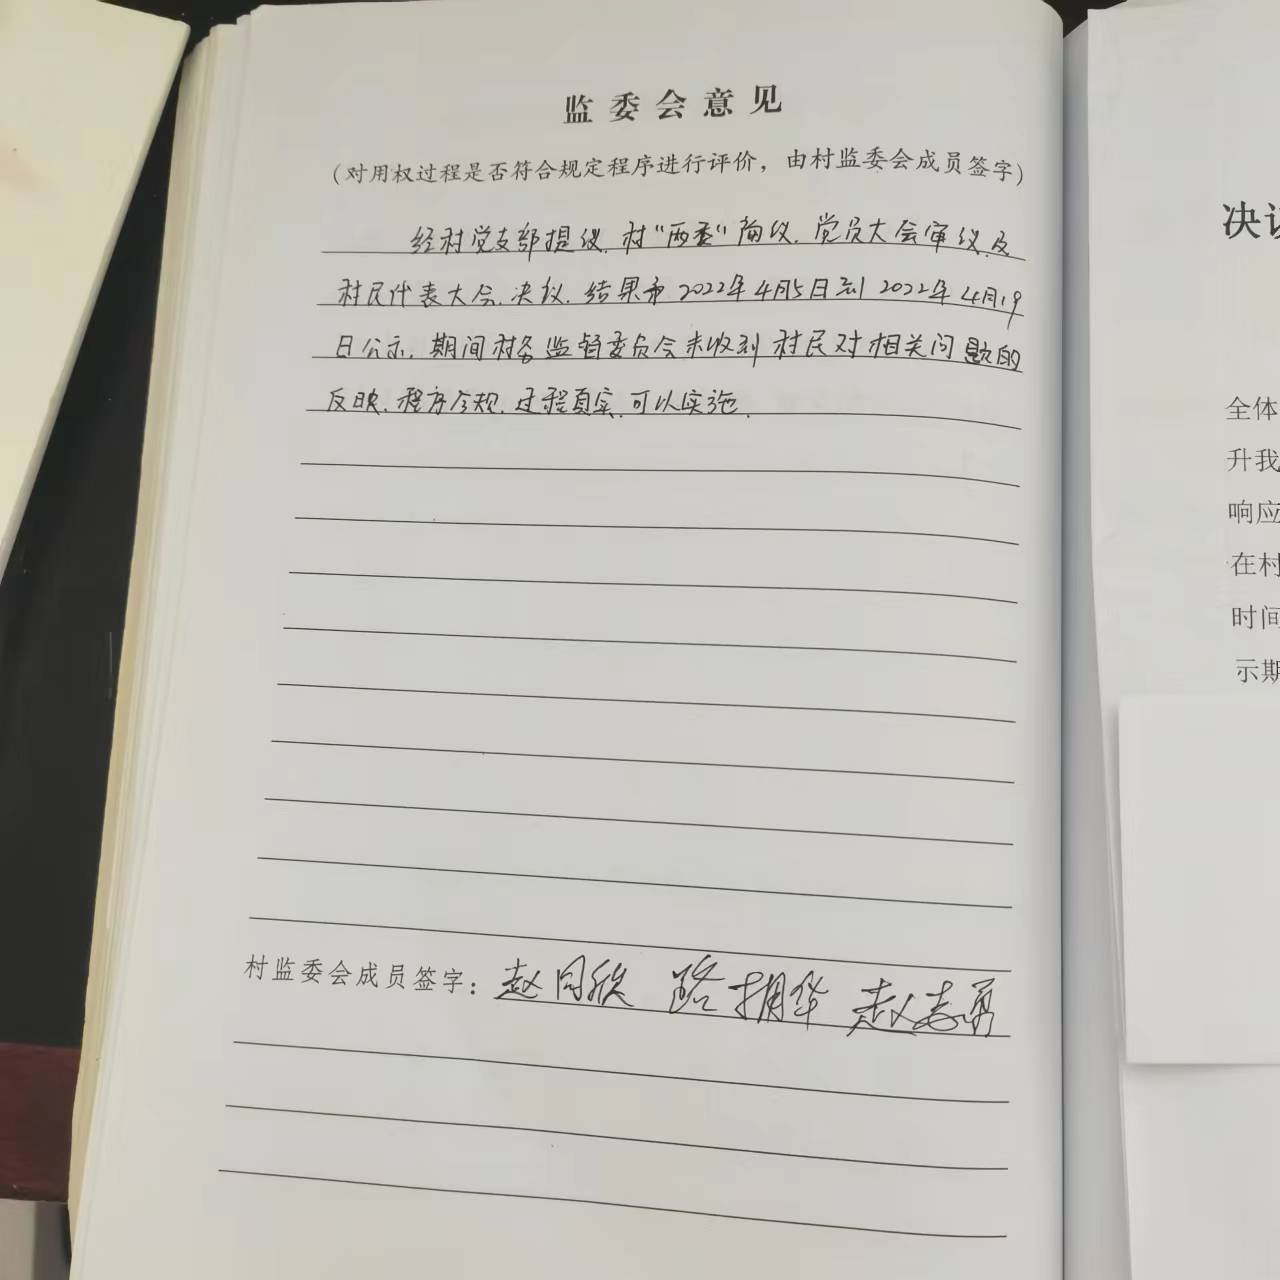 监委会意见
（对用权过程是否符合规定程序进行评价，由村监委会成员签字）
经村党支部提议.村“两委”商议.党员大会审议.及
村民代表大会.决议.结果于2022年4月5日到2022年4月19
日公示.期间村务监督委员会未收到村民对相关问题的
反映.程序合规.过程真实.可以实施.
村监委会成员签字：赵同欣 路拥华 赵志勇
决议
全体
升我
响应
在村
时间
示期